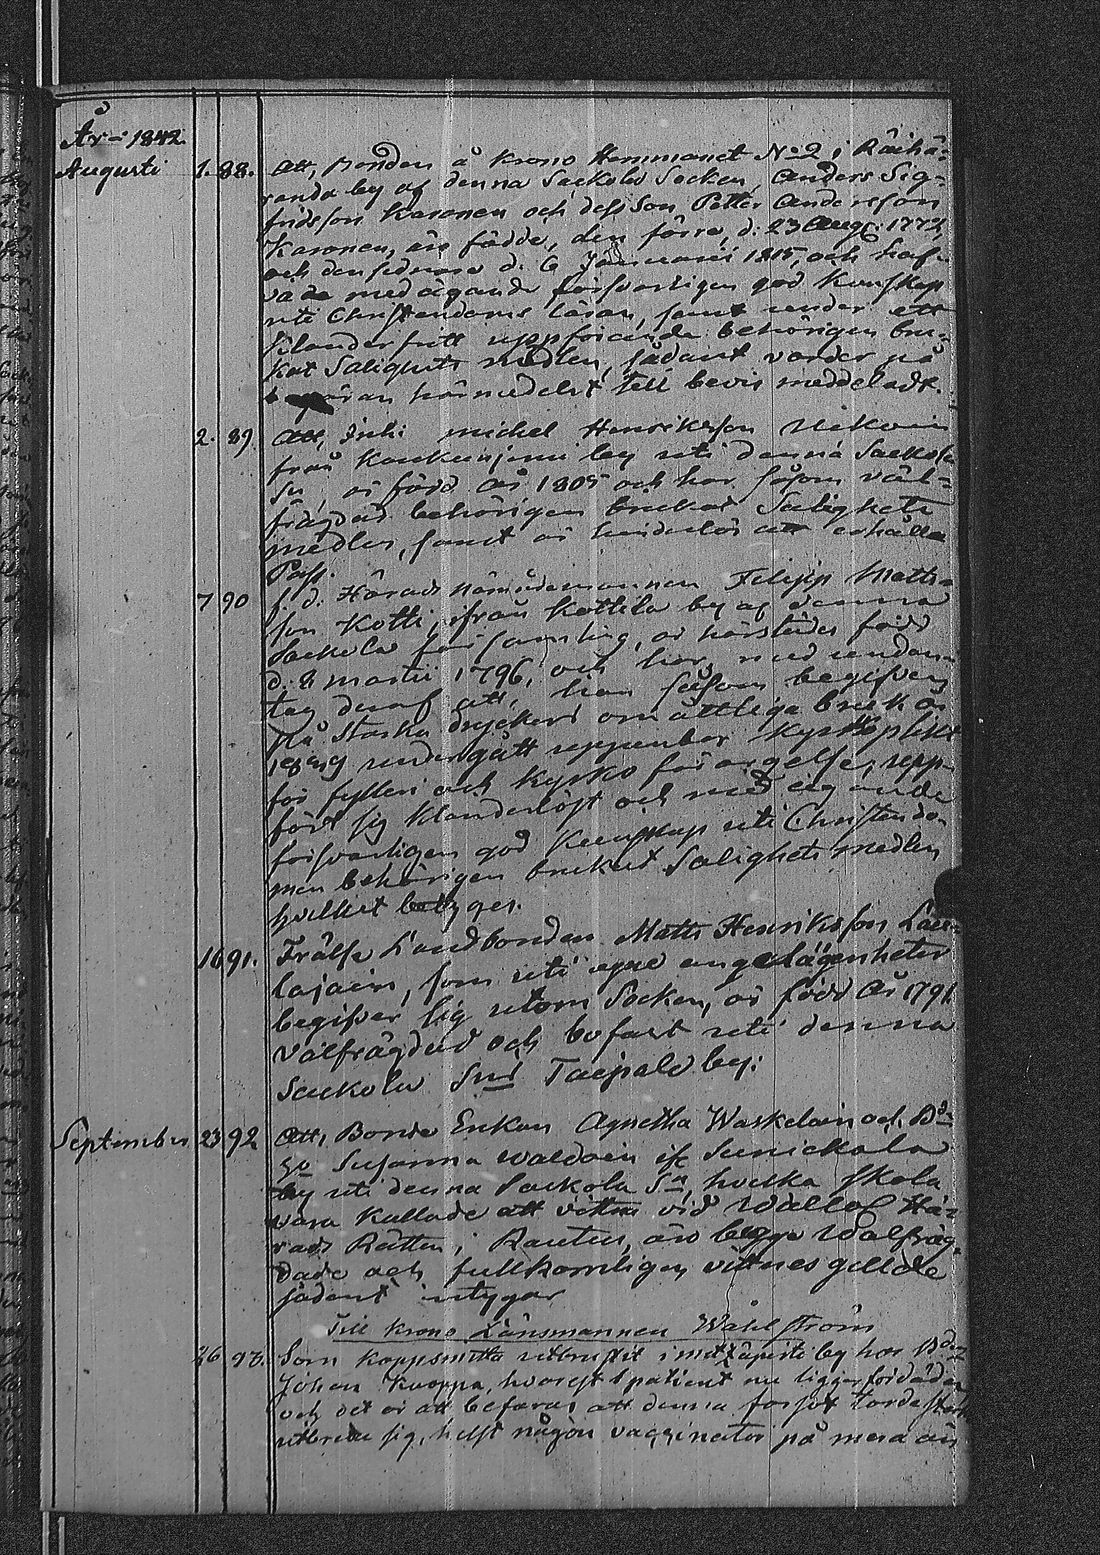 År 1842.
Augusti 1. 88. Att, Bonden å Krono Hemmanet No 2 i Räihä-
randa by af denna Sackola Socken, Anders Sig-
fridsson Karonen och dess Son, Petter Andersson
Karonen, äro födde, den förre, d. 23 Aug. 1772,
och den sednare d. 6 Januarii 1815, och haf-
va de med ägande försvarligen god Kunskap
uti Christendoms läran, samt under ett
Klanderfritt uppförande behörigen bru-
kat Salighets medlen, sådant varder på
begäran härmedelst till bevis meddeladt.
2. 89. Att, Inhi Michel Henriksson
från by uti denna Sackola
Sn, är född År 1805 och har såsom väl-
frägdad behörigen brukat Salighets
medlen, samt är hinderlös att erhålla
Pass.
7 90 f. d. Härads Nämndemannen Filipp Matts-
son Kotti, ifrån Kottila by af denna
Sackola församling, är härstädes född
d. 8 Martii 1796, och har, med undan-
tag deraf att, han såsom begifven
på Starka dryckers omåttliga bruk år
1839 undergått uppenbar Kyrkoplikt
för fylleri och Kyrko förargelse, upp-
fört sig Klanderlöst och med ägande
försvarligen god Kunskap uti Christendo-
men behörigen brukat Salighets medlen
hvilket betyges.
16 91. Frälse Landbonden Matts Henriksson Lau-
lajain, som uti egne angelägenheter
begifver sig utom Socken, är född År 1791.
välfrägdad och bofast uti denna
Sackola Sns Taipale by.
September 23 92 Att, Bonde Enkan Agnetha Waskelain och Bd-
So Susanna Waldain if Sunickala
by uti denna Sackola Sn, hvilka skola
vara Kallade att vittna vid Wallof Hä-
rads Rätten i Rautus, äro begge Walfräg-
dade och fullkomligen vittnesgillde
sådant intygar
Till Krono Länsmannen Wåhlström
26 93. Som Koppsmitta utbrustit i by hos Bden
Johan Kuoppa, hvarest 1 patient nu ligger
och det är att befaras att denna farsot torde starkt
utbreda sig, helst någon vaccinator på mera än